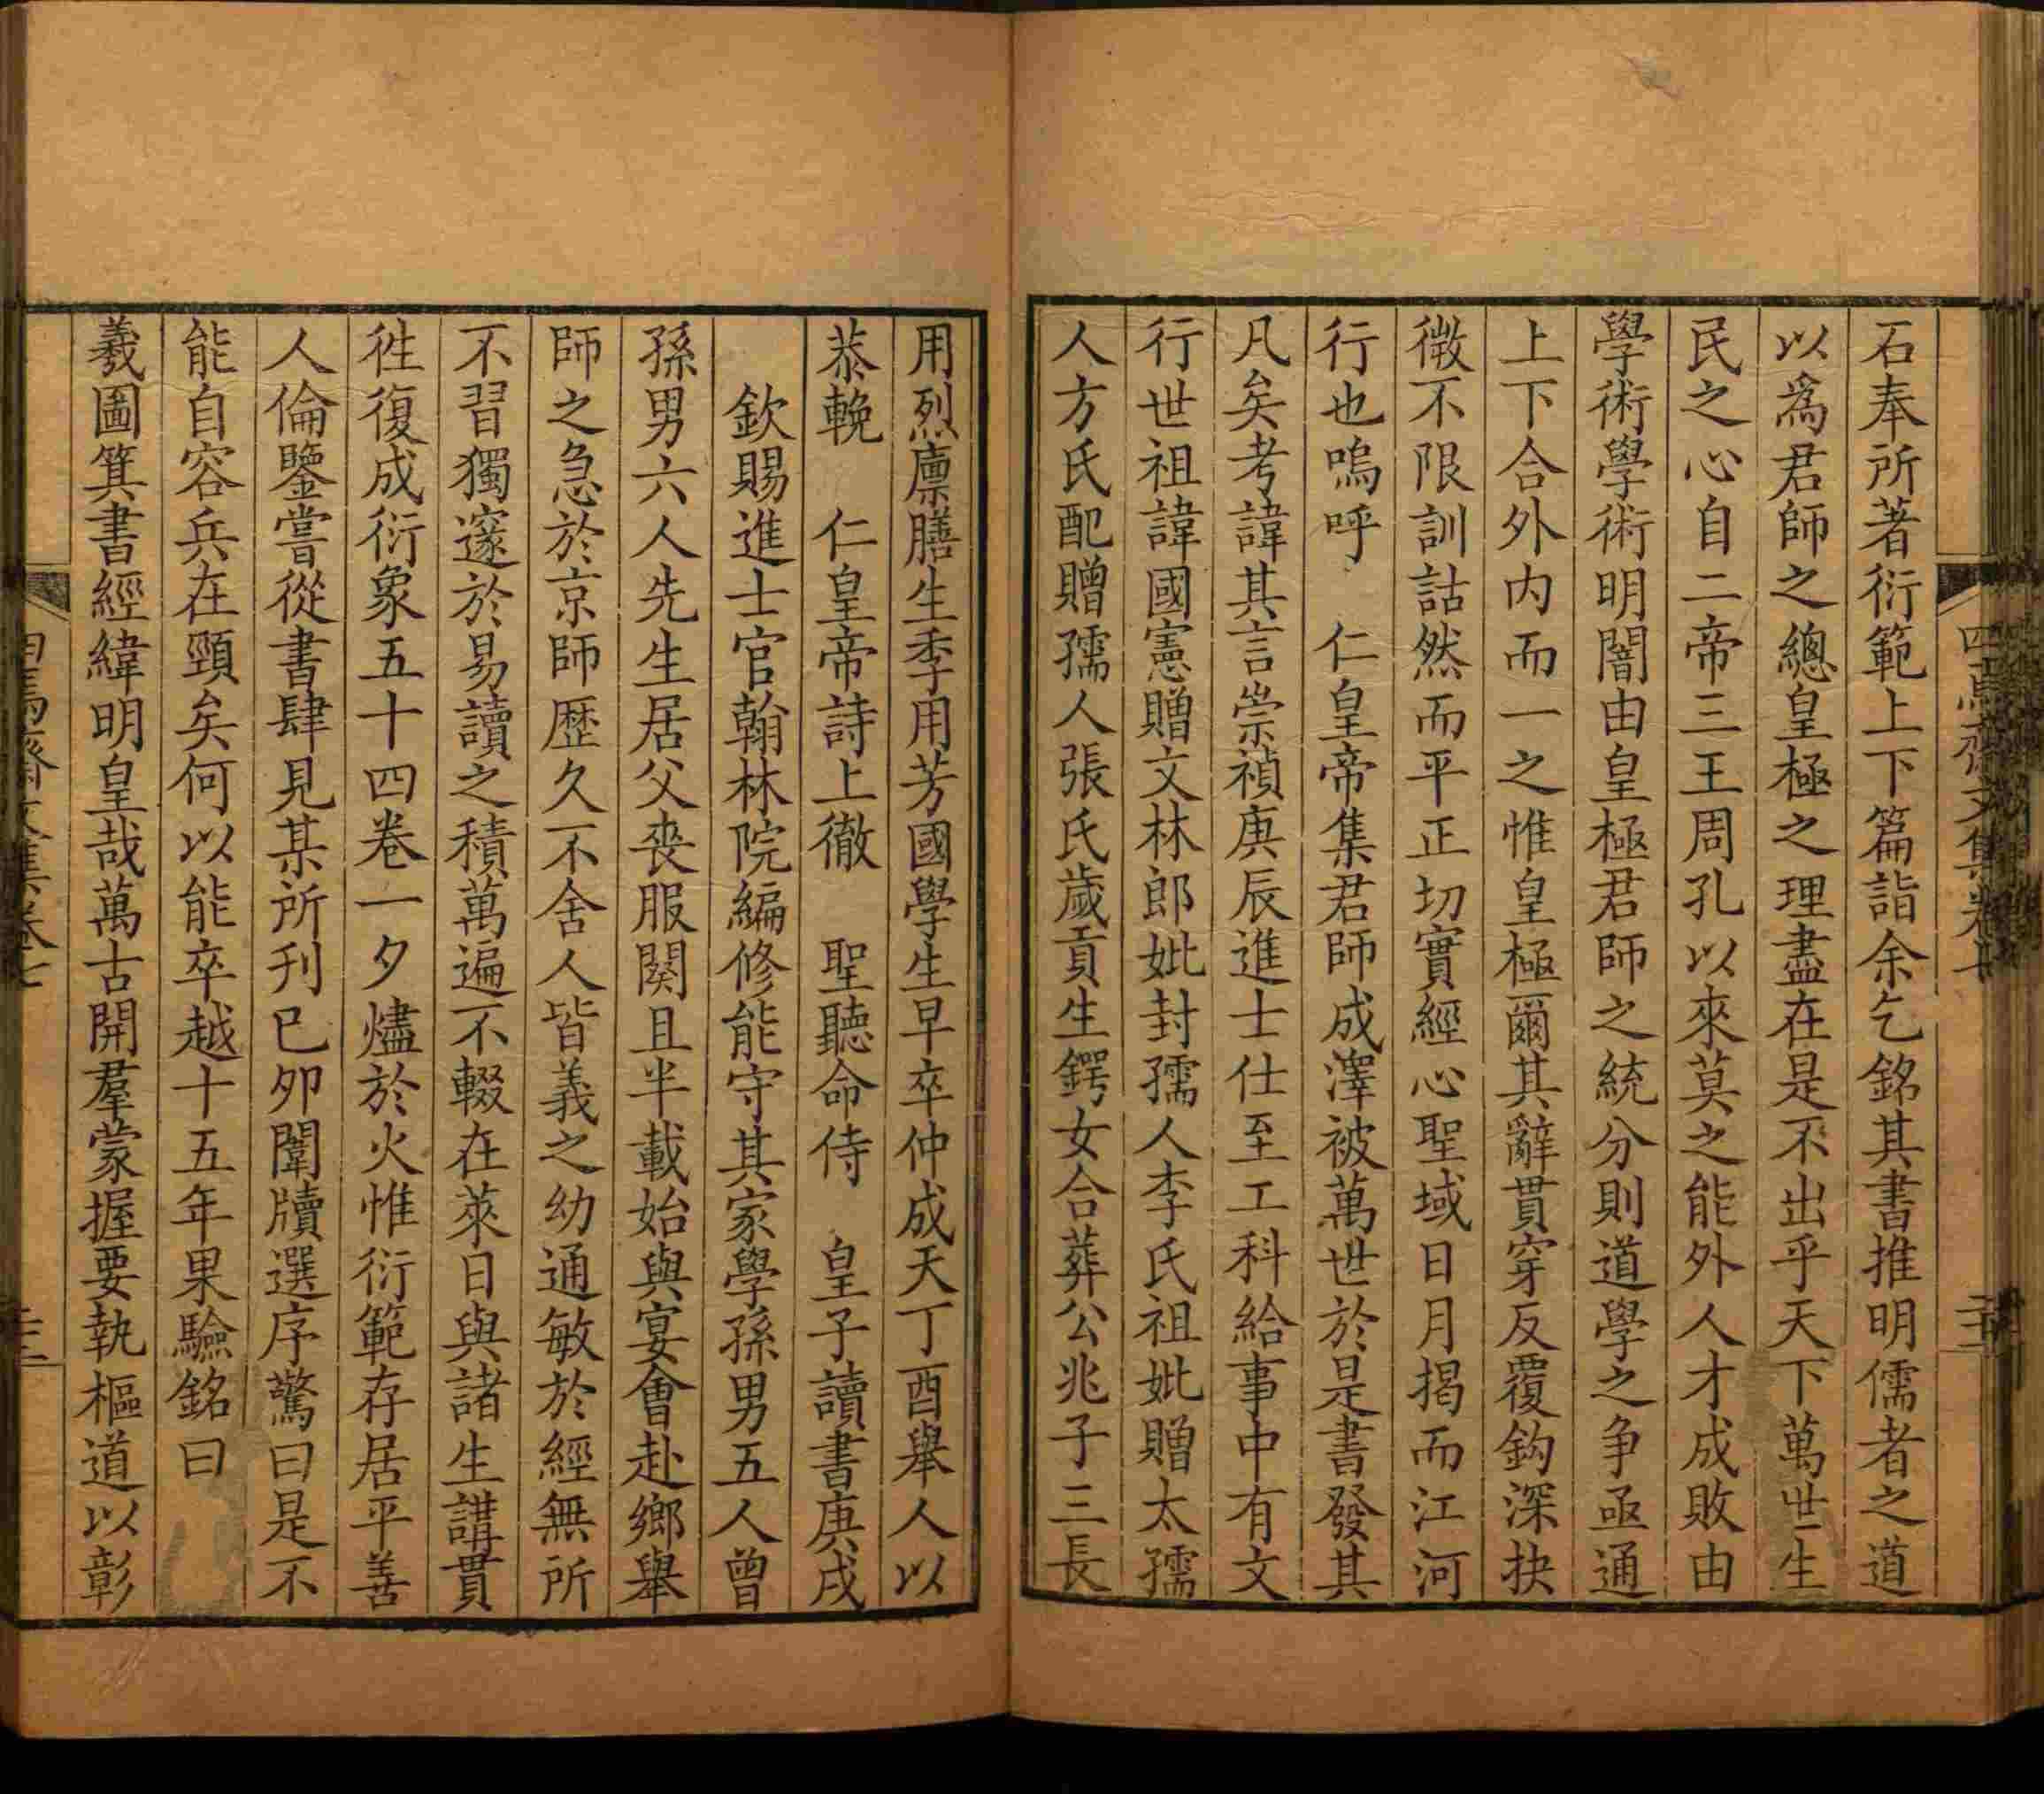 石奉所著衍範上下篇詣余乞銘其書推明儒者之道
以爲君師之總皇極之理盡在是不出乎天下萬世生
民之心自二帝三王周孔以來莫之能外人才成敗由
學術學術明闇由皇極君師之統分則道學之争亟通
上下合外内而一之惟皇極爾其辭貫穿反覆鈎深抉
徵不限訓詁然而平正切實經心聖域日月揭而江河
行也嗚呼 仁皇帝集君師成澤被萬世於是書發其
凡矣考諱其言崇禎庚辰進士仕至工科給事中有文
行世祖諱國憲贈文林郎妣封孺人李氏祖妣贈太孺
人方氏配贈孺人張氏歲貢生鍔女合葬公兆子三長
用烈廪膳生季用芳國學生早卒仲成天丁酉舉人以
恭輓 仁皇帝詩上徹 聖聽命侍 皇子讀書庚戌
欽賜進士官翰林院編修能守其家學孫男五人曾
孫男六人先生居父丧服闋且半載始與宴會赴鄉舉
師之急於京師歷久不舍人皆義之幼通敏於經無所
不習獨邃於易讀之積萬遍不輟在萊日與諸生講貫
徃復成衍象五十四卷一夕燼於火惟衍範存居平善
人倫鑒嘗從書肆見某所刋已卯闈牘選序驚曰是不
能自容兵在頸矣何以能卒越十五年果驗銘曰
羲圖箕書經緯明皇哉萬古開羣蒙握要執樞道以彰